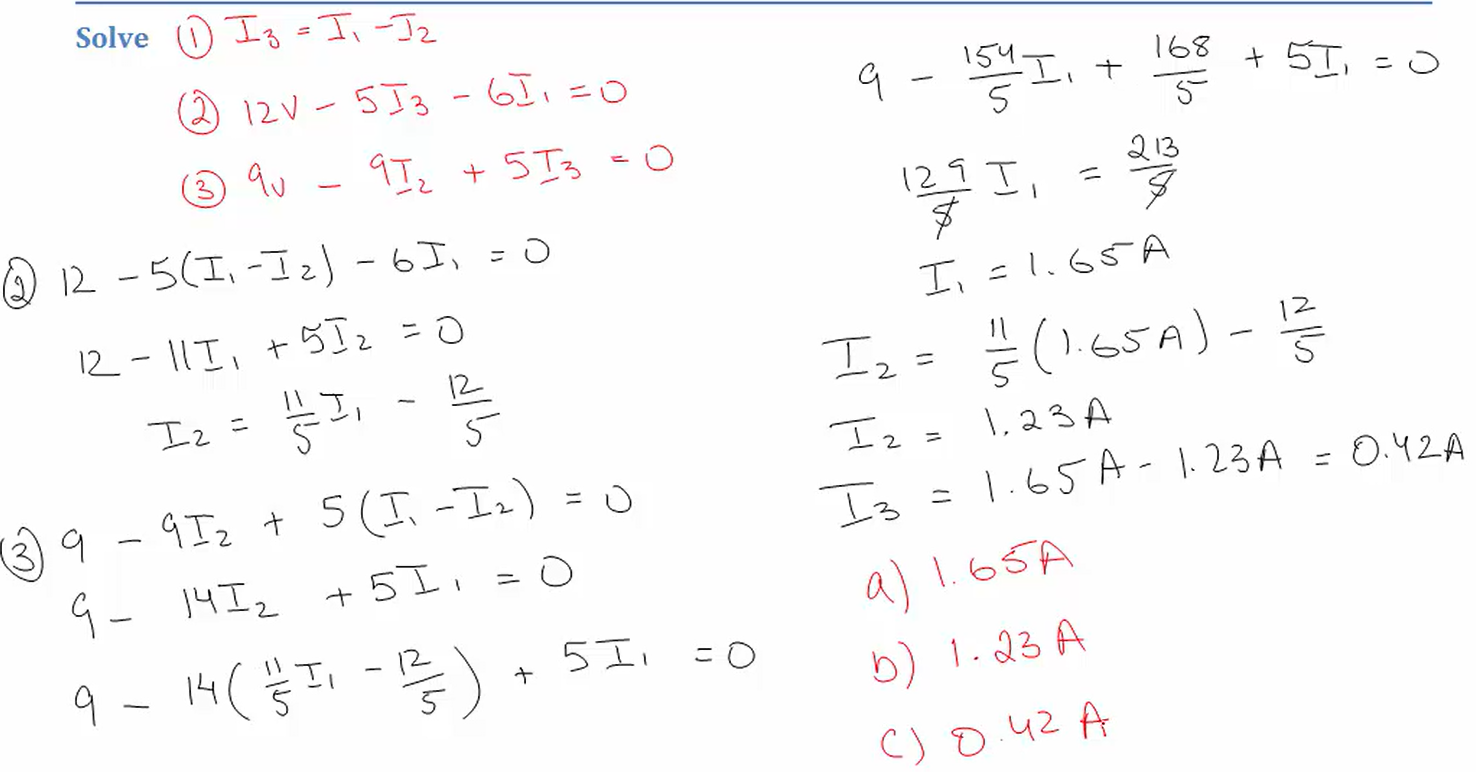 Solve ① I₃ = I₁ - I₂
② 12V - 5I₃ - 6I₁ = 0
③ 9V - 9I₂ + 5I₃ = 0
② 12 - 5(I₁ - I₂) - 6I₁ = 0
12 - 11I₁ + 5I₂ = 0
I₂ = 11/5 I₁ - 12/5
③ 9 - 9I₂ + 5(I₁ - I₂) = 0
9 - 14I₂ + 5I₁ = 0
9 - 14(11/5 I₁ - 12/5) + 5I₁ = 0
9 - 154/5 I₁ + 168/5 + 5I₁ = 0
129/5 I₁ = 213/5
I₁ = 1.65A
I₂ = 11/5 (1.65A) - 12/5
I₂ = 1.23A
I₃ = 1.65A - 1.23A = 0.42A
a) 1.65A
b) 1.23A
c) 0.42A